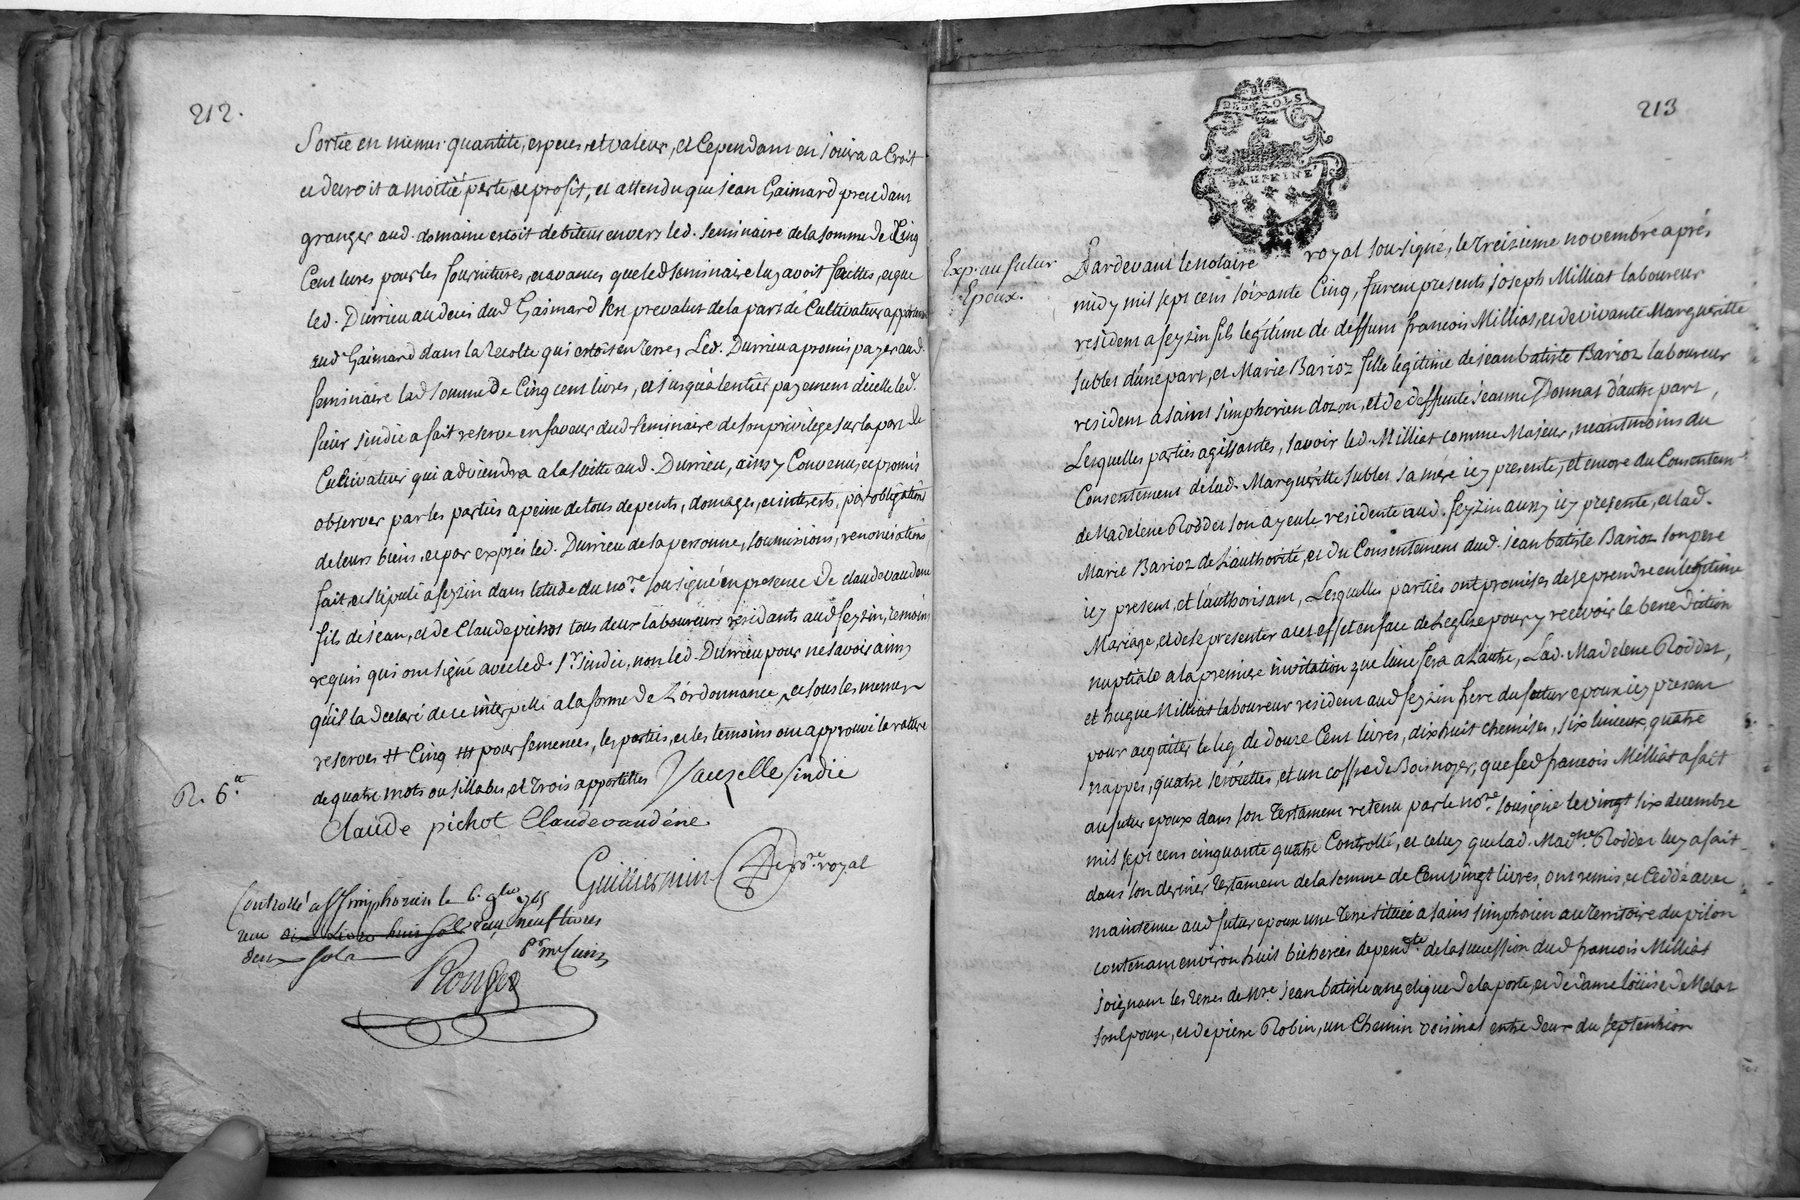 212.
Sortie en mêmes quantité, especes et valeur, et Cependant en jouira a Croit
et decroit a moitié perte et profit, et attendu que jean Gaimard precedant
granger aud. domaine estoit debiteur envers led. Seminaire de la somme de Cinq
Cent livres pour les fournitures, et avances que led Seminaire luy avoit faittes, et que
led. Durrieu au deceu dud Gaimard s'en prevalut de la part de Cultivateur appartenant
aud Gaimard dans la recolte qui estoit en terre, Led. Durrieu a promis payer aud.
Seminaire lad somme de Cinq cent livres, et jusqu'a lentier payement d'icelle led.
sieur sindic a fait reserve en faveur dud Seminaire de son privilege sur la part de
Cultivateur qui adviendra a la suitte aud. Durrieu, ainsy Convenu, et promis
observer par les parties a peine de tous depents, domages, et interets, par obligations
de leurs biens, et par exprés led. Durrieu de sa personne, soumissions, renonciations,
fait, et stipulé a feyzin dans letude du no.re sousigné en presence de claude vaudene
fils de jean, et de Claude pichot tous deux laboureurs residants aud feyzin, temoins
requis qui ont signé avec led. s.r sindic, non led. Durrieu pour ne savoir ainsy
qu'il la declaré de ce interpellé a la forme de L'ordonnance, et sous les mêmes
reserves # Cinq ## pour semences, les parties, et les temoins ont approuvé la rature
de quatre mots ou sillabes, et trois appostilles Vauzelle sindic
R. 6.tt
Claude pichot Claude vaudéne
Guilliermin no.re royal
Controllé a St Simphorien le 6. 9bre 1765
recu six livres huit sols recu neuf livres
deux sols
Rouges
213
DEUX SOLS
DAUPHINE
Exp. au futur
Epoux.
Pardevant le notaire royal sousigné, le treizieme novembre aprés
midy mil sept cent soixante Cinq, furent presents joseph Milliat laboureur
resident a feyzin fils legitime de deffunt francois Milliat, et de vivante Margueritte
Sublet d'une part, et Marie Barioz fille legitime de jean batiste Barioz laboureur
resident a saint simphorien dozon, et de deffunte jeanne Donnat d'autre part,
Lesquelles parties agissantes, savoir led. Milliat comme Majeur, neantmoins du
Consentement de lad. Marguerite Sublet sa mere icy presente, et encore du Consentem.t
de Madelene Rodder son ayeule residente aud. feyzin aussy icy presente, et lad.
Marie Barioz de L'authorité, et du Consentement dud. jean batiste Barioz son pere
icy present, et l'authorisant, Lesquelles parties ont promises de se prendre en legitime
Mariage, et de se presenter a cet effet en face de Leglise pour y recevoir la benediction
nuptiale a la premiere invitation que l'une fera a L'autre, Lad. Madelene Rodder,
et hugue Milliat laboureur resident aud feyzin frere du futur epoux icy present
pour acquitter le leg de douze Cent livres, dixhuit chemises, six linceux, quatre
nappes, quatre serviettes, et un coffre de Bois noyer, que led francois Milliat a fait
au futur epoux dans son testament retenu par le no.re sousigné le vingt six decembre
mil sept cent cinquante quatre Controllé, et celuy que lad. Mad.ne Rodder luy a fait
dans son dernier testament de la somme de Cent vingt livres, ont remis, et Ceddé avec
maintenue aud futur epoux une terre situëe a saint simphorien au territoire du pilon
contenant environ huit bicherées depend.te de la succession dud francois Milliat
joignant les terres de m.re jean batiste angelique de la porte, et de dame louise de Melat
son Epouse, et de pierre Robin, un chemin voisinal entre deux du septentrion